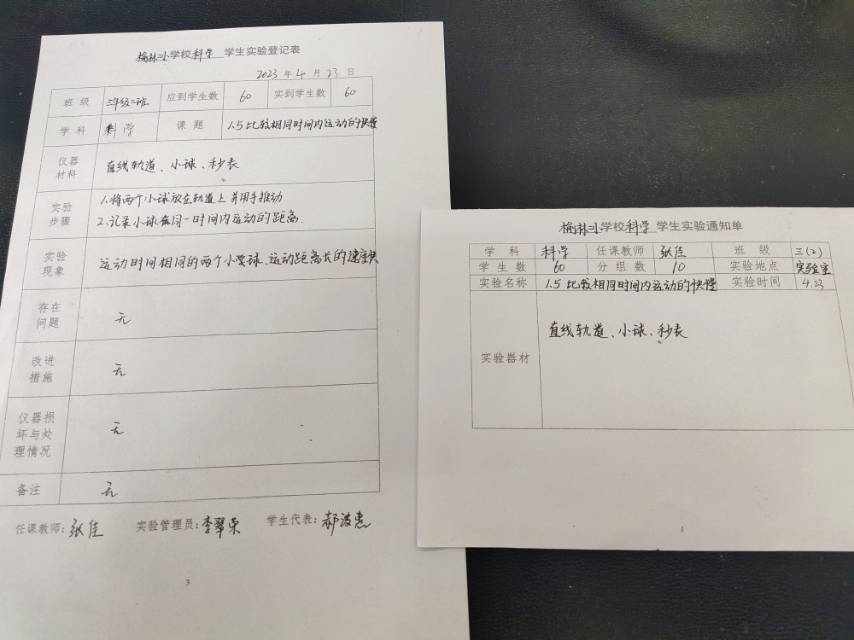 榆林小学校科学 学生实验登记表
2023年4月23日
班级 三年级二班 应到学生数 60 实到学生数 60
学科 科学 课题 1.5比较相同时间内运动的快慢
仪器材料 直线轨道、小球、秒表
实验步骤 1.将两个小球放在轨道上并用手推动
2.记录小球在同一时间内运动的距离.
实验现象 运动时间相同的两个小球,运动距离长的速度快
存在问题 无
改进措施 无
仪器损坏与处理情况 无
备注 无
任课教师:张佳 实验管理员:李翠荣 学生代表:郝波惠
3
榆林小学校科学 学生实验通知单
学科 科学 任课教师 张佳 班级 三(2)
学生数 60 分组数 10 实验地点 实验室
实验名称 1.5比较相同时间内运动的快慢 实验时间 4.23
实验器材 直线轨道、小球、秒表
1